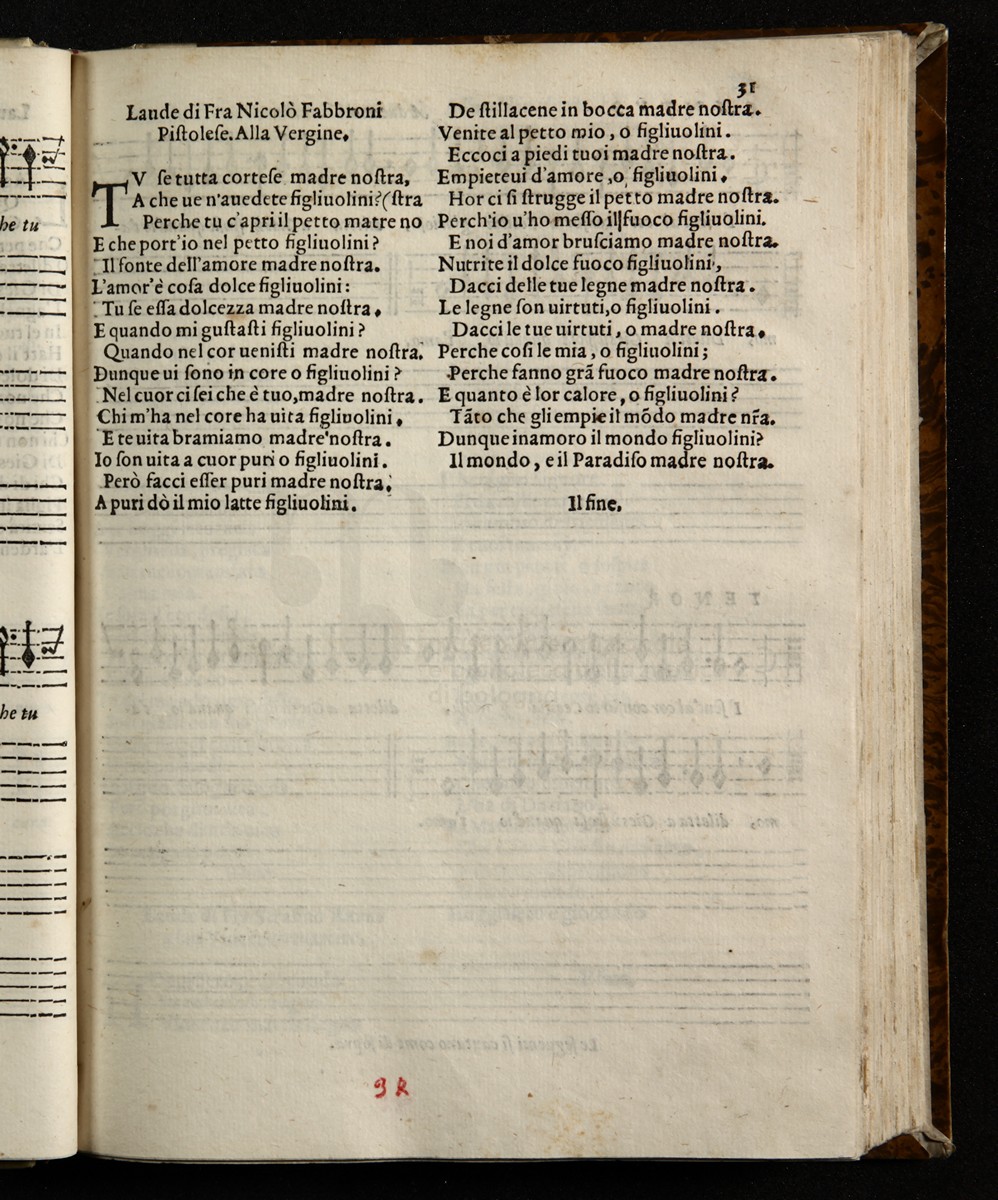 31
Laude di Fra Nicolò Fabbroni
Piſtoleſe. Alla Vergine.
TV ſe tutta corteſe madre noſtra,
A che ue n'auedete figliuolini? (ſtra
Perche tu c'apri il petto matre no
E che port'io nel petto figliuolini?
Il fonte dell'amore madre noſtra.
L'amor'è coſa dolce figliuolini:
Tu ſe eſſa dolcezza madre noſtra.
E quando mi guſtaſti figliuolini?
Quando nel cor ueniſti madre noſtra.
Dunque ui ſono in core o figliuolini?
Nel cuor ci ſei che è tuo, madre noſtra.
Chi m'ha nel core ha uita figliuolini,
E te uita bramiamo madre noſtra.
Io ſon uita a cuor puri o figliuolini.
Però facci eſſer puri madre noſtra.
A puri dò il mio latte figliuolini.
De ſtillacene in bocca madre noſtra.
Venite al petto mio, o figliuolini.
Eccoci a piedi tuoi madre noſtra.
Empieteui d'amore, o figliuolini.
Hor ci ſi ſtrugge il petto madre noſtra.
Perch'io u'ho meſſo il fuoco figliuolini.
E noi d'amor bruſciamo madre noſtra.
Nutrite il dolce fuoco figliuolini,
Dacci delle tue legne madre noſtra.
Le legne ſon uirtuti, o figliuolini.
Dacci le tue uirtuti, o madre noſtra.
Perche coſi le mia, o figliuolini;
Perche fanno grã fuoco madre noſtra.
E quanto è lor calore, o figliuolini?
Tãto che gli empie il mõdo madre nr̃a.
Dunque inamoro il mondo figliuolini?
Il mondo, e il Paradiſo madre noſtra.
Il fine.
he tu
he tu